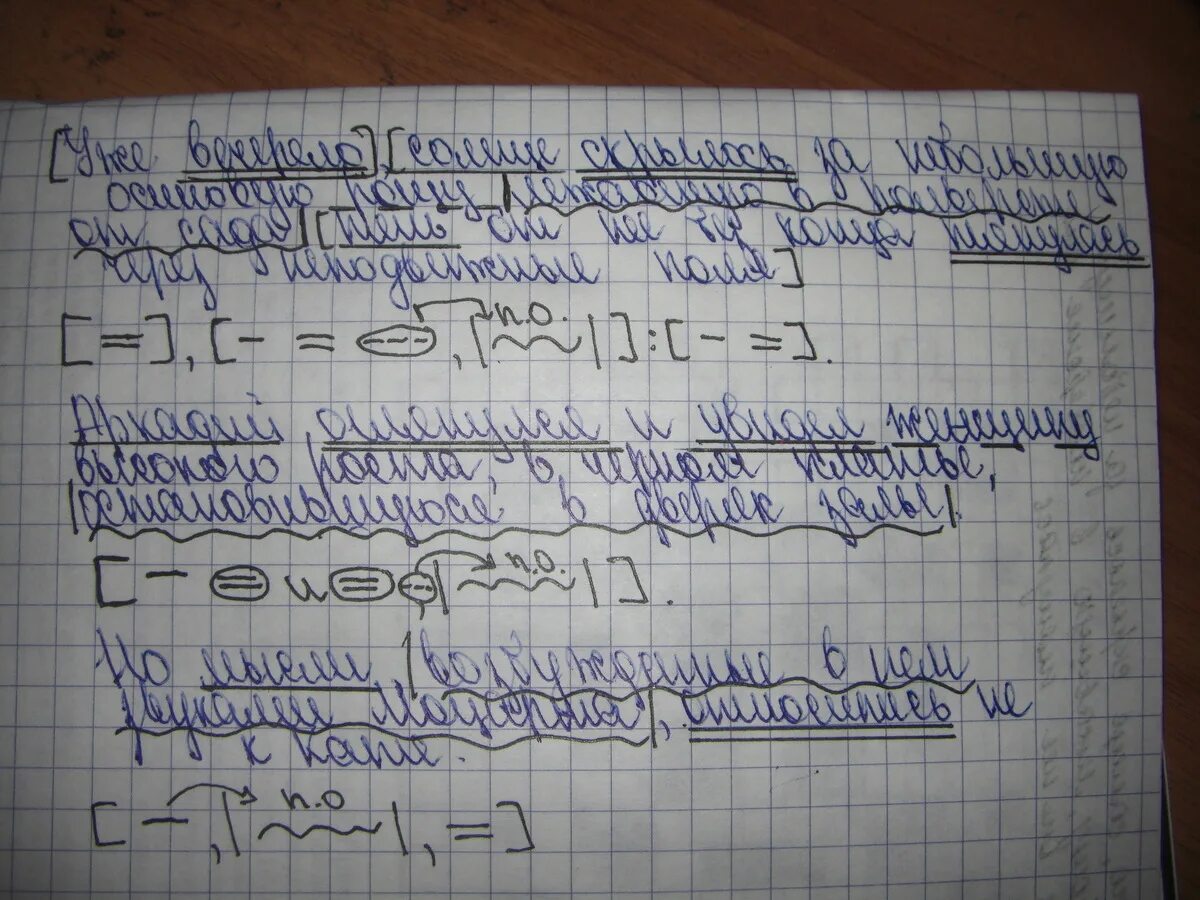 [Уже вечерело], [солнце скрылось за небольшую
осиновую рощу, |лежавшую в полверсте
от сада| [тень от нее без конца тянулась
через неподвижные поля]
[=], [- = (---), |п.о.|]:[- =].
Аркадий оглянулся и увидел женщину
высокого роста, в черном платье,
|остановившуюся в дверях залы|.
[- (=) и (=) (--), |п.о.|].
Но мысли, |возбужденные в нем
звуками Моцарта|, относились не
к Кате.
[-, |п.о|, =]